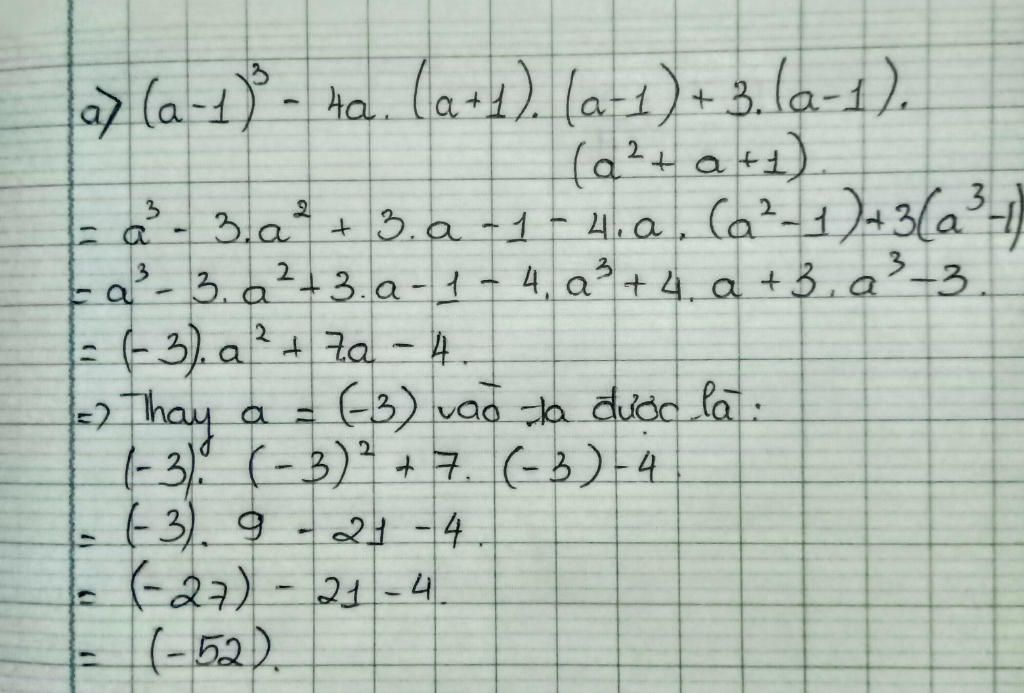 a) (a-1)³ - 4a. (a+1). (a-1) + 3. (a-1).
(a² + a + 1).
= a³ - 3.a² + 3.a - 1 - 4.a. (a² - 1) + 3(a³ - 1)
= a³ - 3.a² + 3.a - 1 - 4.a³ + 4.a + 3.a³ - 3.
= (-3).a² + 7.a - 4.
=> Thay a = (-3) vào ta được là:
(-3). (-3)² + 7. (-3) - 4.
= (-3). 9 - 21 - 4.
= (-27) - 21 - 4.
= (-52).